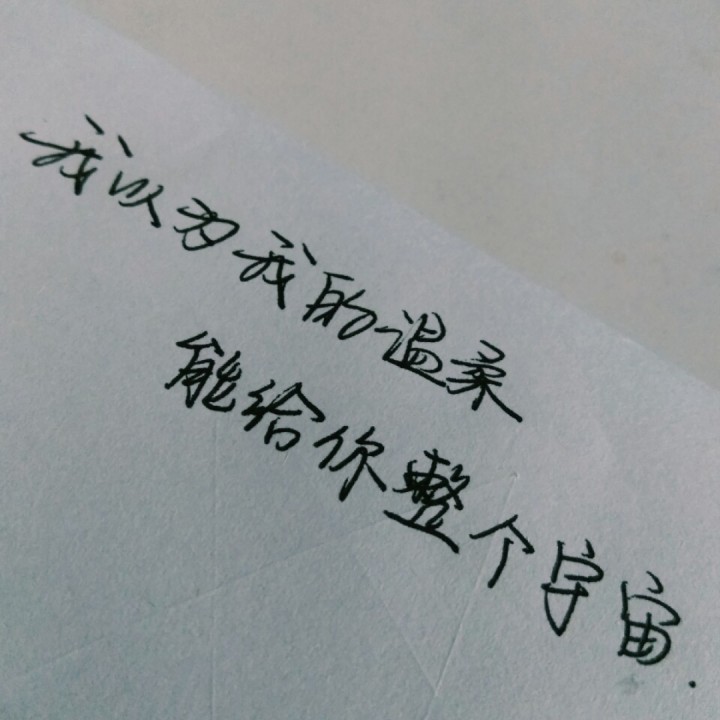 我以为我的温柔
能给你整个宇宙.